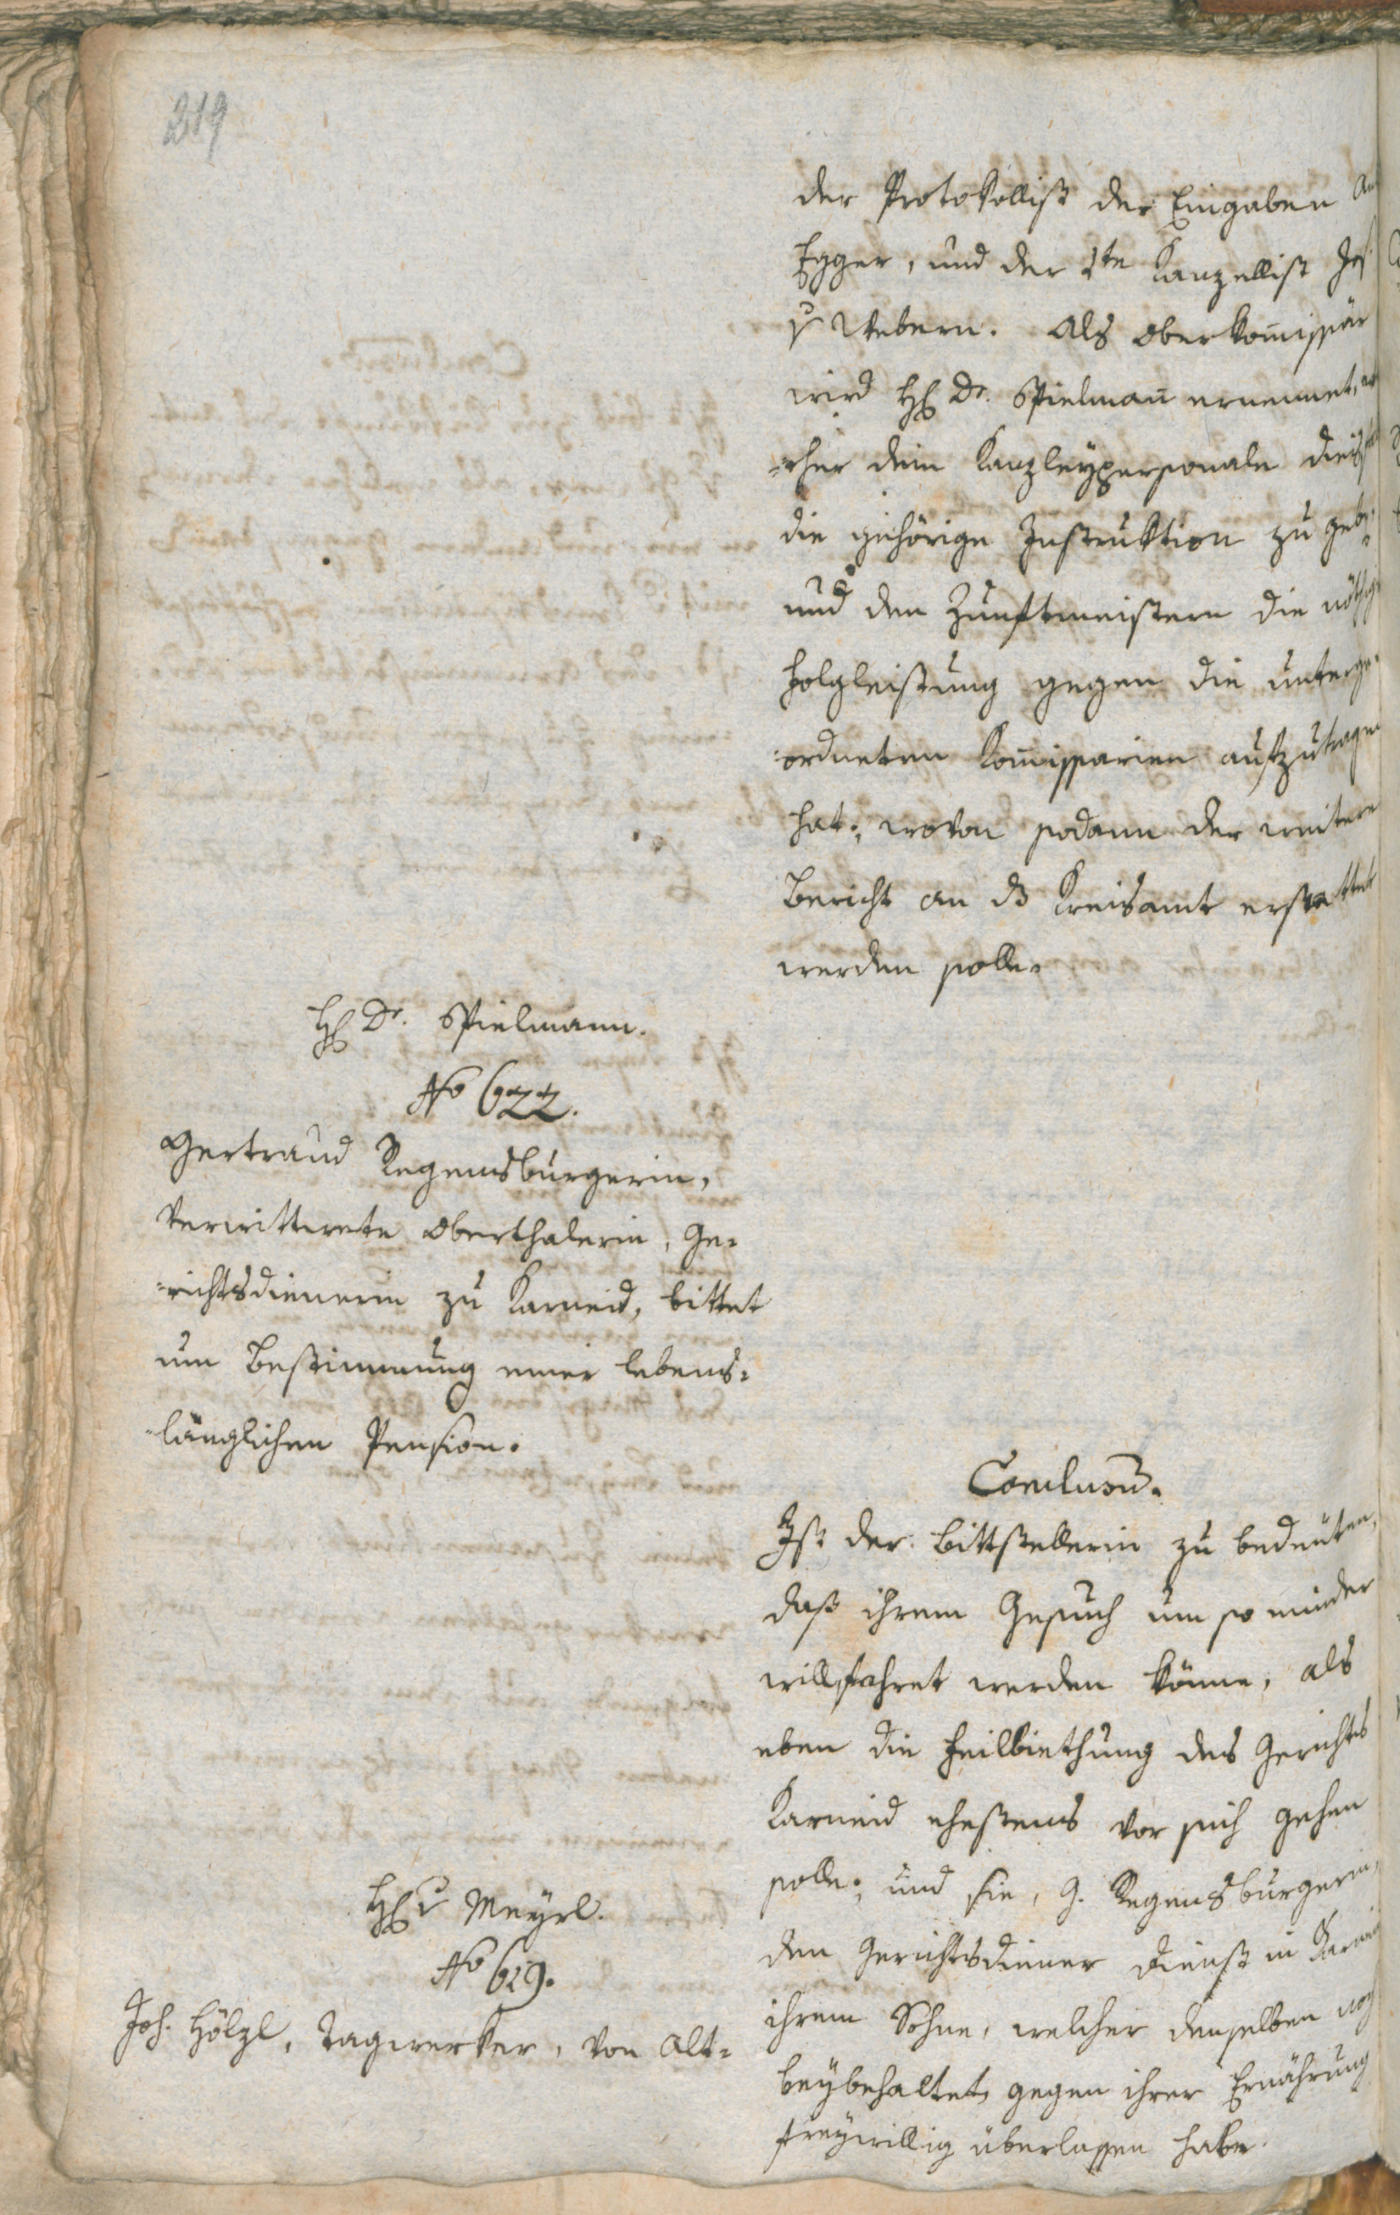 219
der Protokollist der Eingaben
Egger, und der 2te Kanzellist Jos.
v Webern. Als Oberkom̅issär
wird H Dr. Spielman̅ ernennet,
=cher dem Kanzleypersonale
die gehörige Instruktion zu geb
und den Zunftmeistern die nöthige
Folgleistung gegen die unterge=
=ordneten Kom̅issarien aufzutragen
hat; wovon sodann der weitere
Bericht an ds Kreisamt erstattet
werden solle.
H Dr. Spielmann.
No 622.
Gertraud Regensburgerin,
Verwittwete Oberthalerin, Ge=
=richtsdienerin zu Karneid, bittet
um Bestimmung einer lebens=
=länglichen Pension.
Conclusū.
Ist der Bittstellerin zu bedeuten,
daß ihrem Gesuch um so minder
willfahret werden könne, als
eben die Feilbiethung des Gerichts
Karneid ehestens vor sich gehen
solle; und sie, G. Regensburgerin,
den Gerichtsdiener Dienst in Karneid
ihrem Sohne, welcher denselben noch
beybehaltet, gegen ihrer Ernährung
freywillig überlassen habe.
H v Meyrl.
No 619.
Joh. Hölzl, Tagwerker, von Alt=